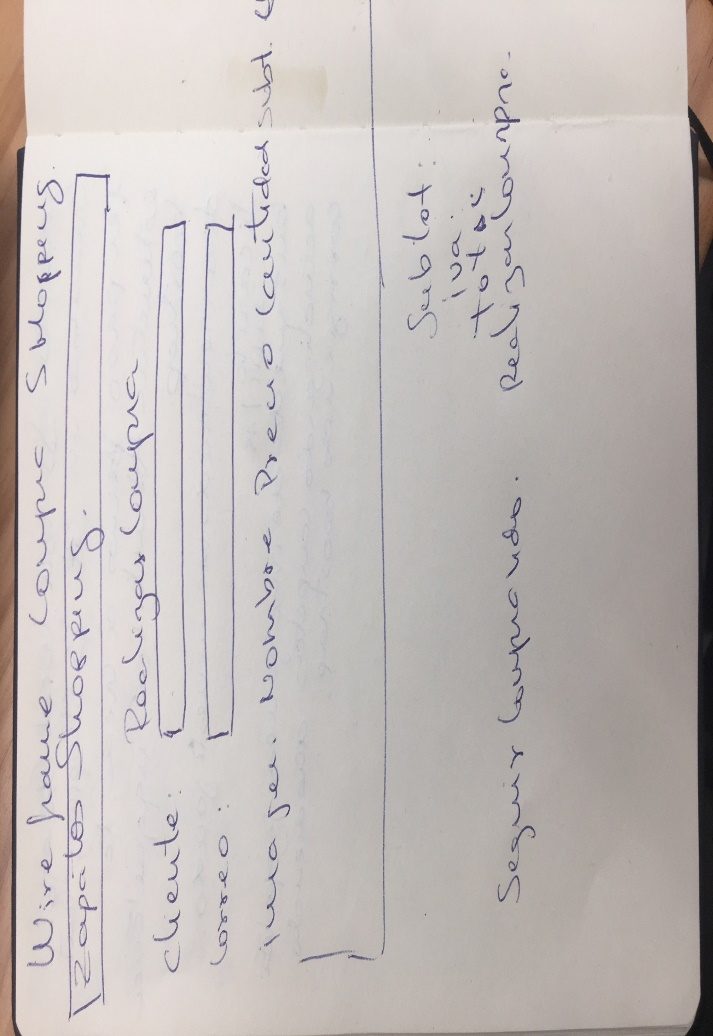 Wire frame Compra Shopping.
Zapatos Shopping.
Realizar Compra
Cliente:
Correo:
imagen. Nombre Precio Cantidad subt.
Subtot:
iva:
tot:
Seguir Comprando. Realizar Compra.